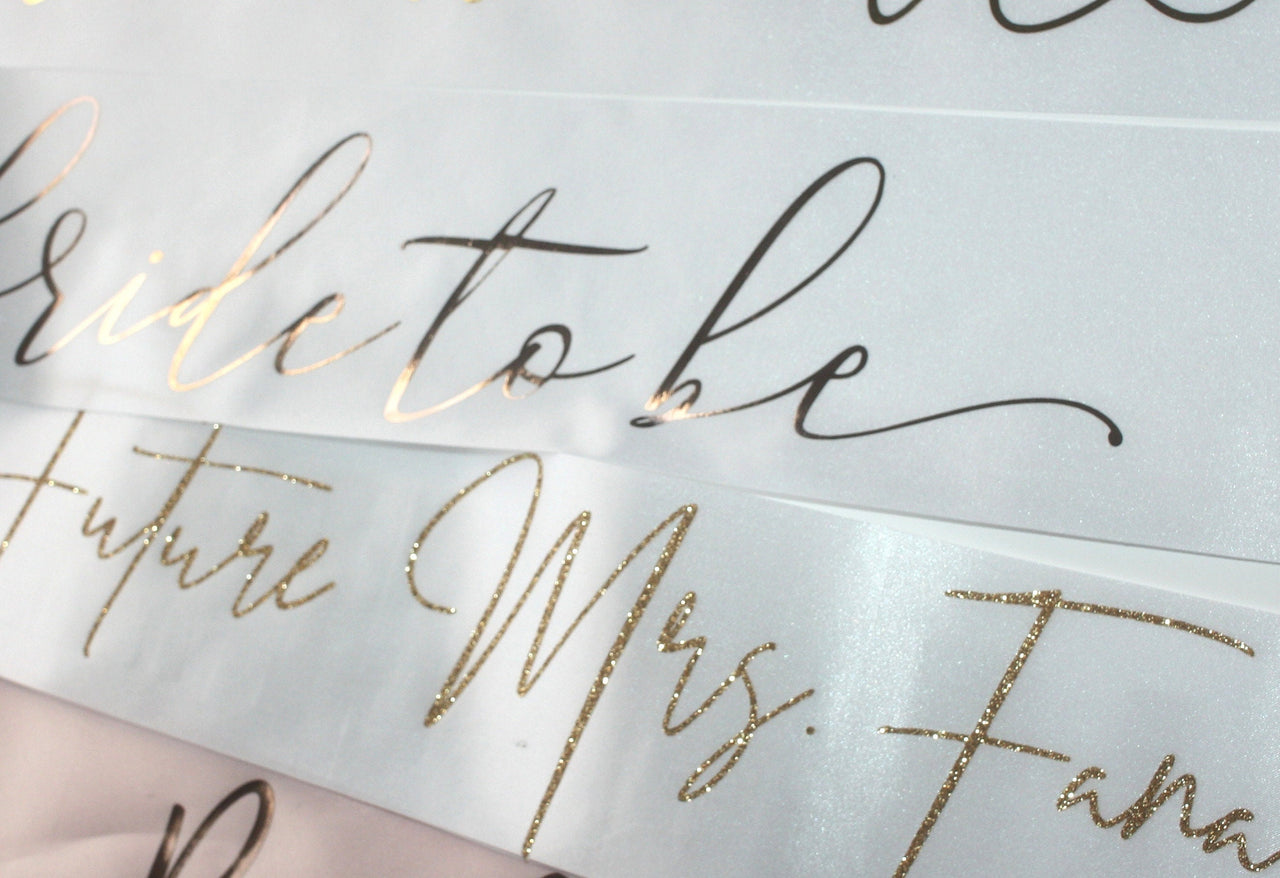 bride to be
Future Mrs. Fana